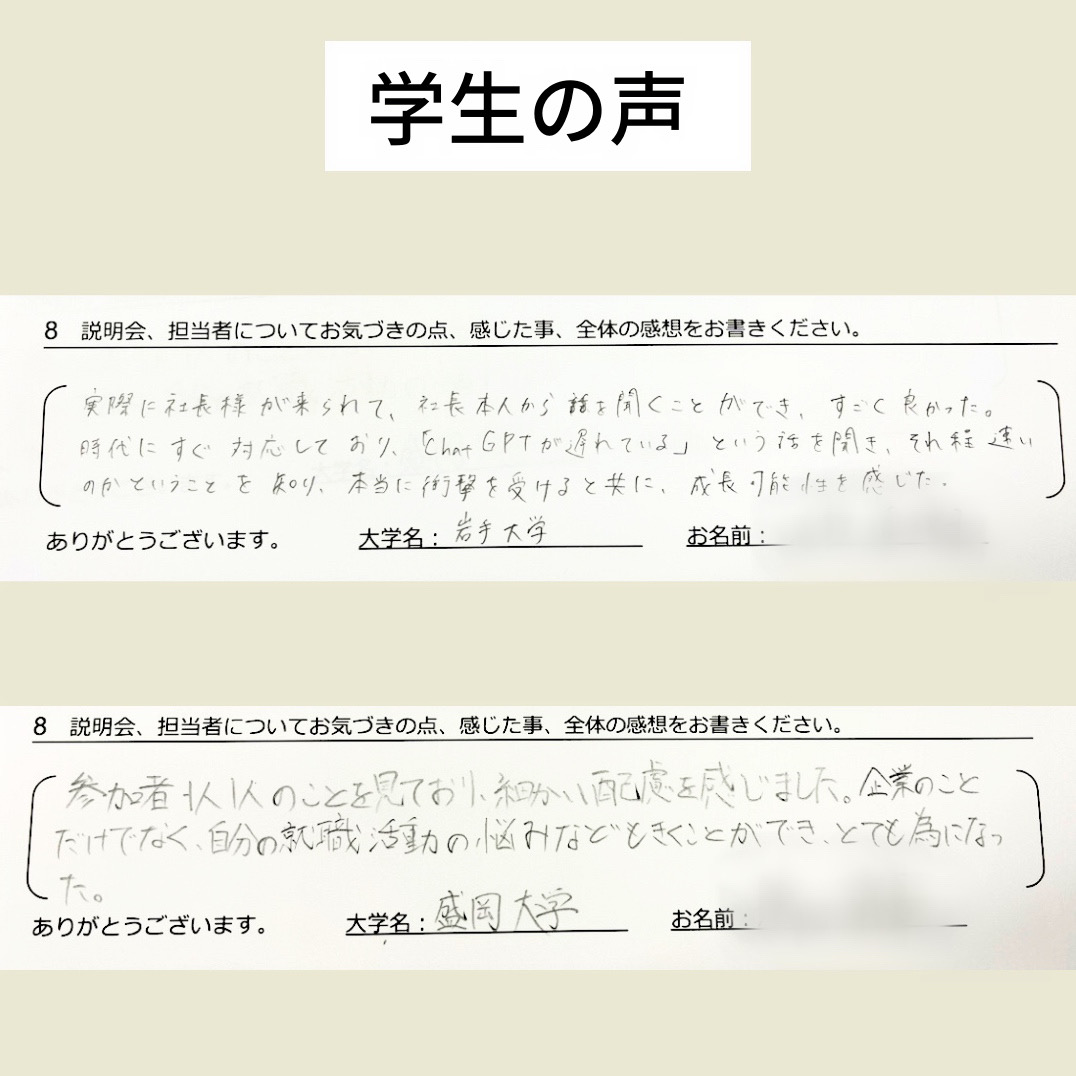 学生の声
8 説明会、担当者についてお気づきの点、感じた事、全体の感想をお書きください。
実際に社長様が来られて、社長本人から話を聞くことができ、すごく良かった。
時代にすぐ対応しており、「ChatGPTが遅れている」という話を聞き、それ程速い
のかということを知り、本当に衝撃を受けると共に、成長可能性を感じた。
ありがとうございます。 大学名：岩手大学 お名前：
8 説明会、担当者についてお気づきの点、感じた事、全体の感想をお書きください。
参加者1人1人のことを見ており、細かい配慮を感じました。企業のこと
だけでなく、自分の就職活動の悩みなどもきくことができ、とても為になっ
た。
ありがとうございます。 大学名：盛岡大学 お名前：